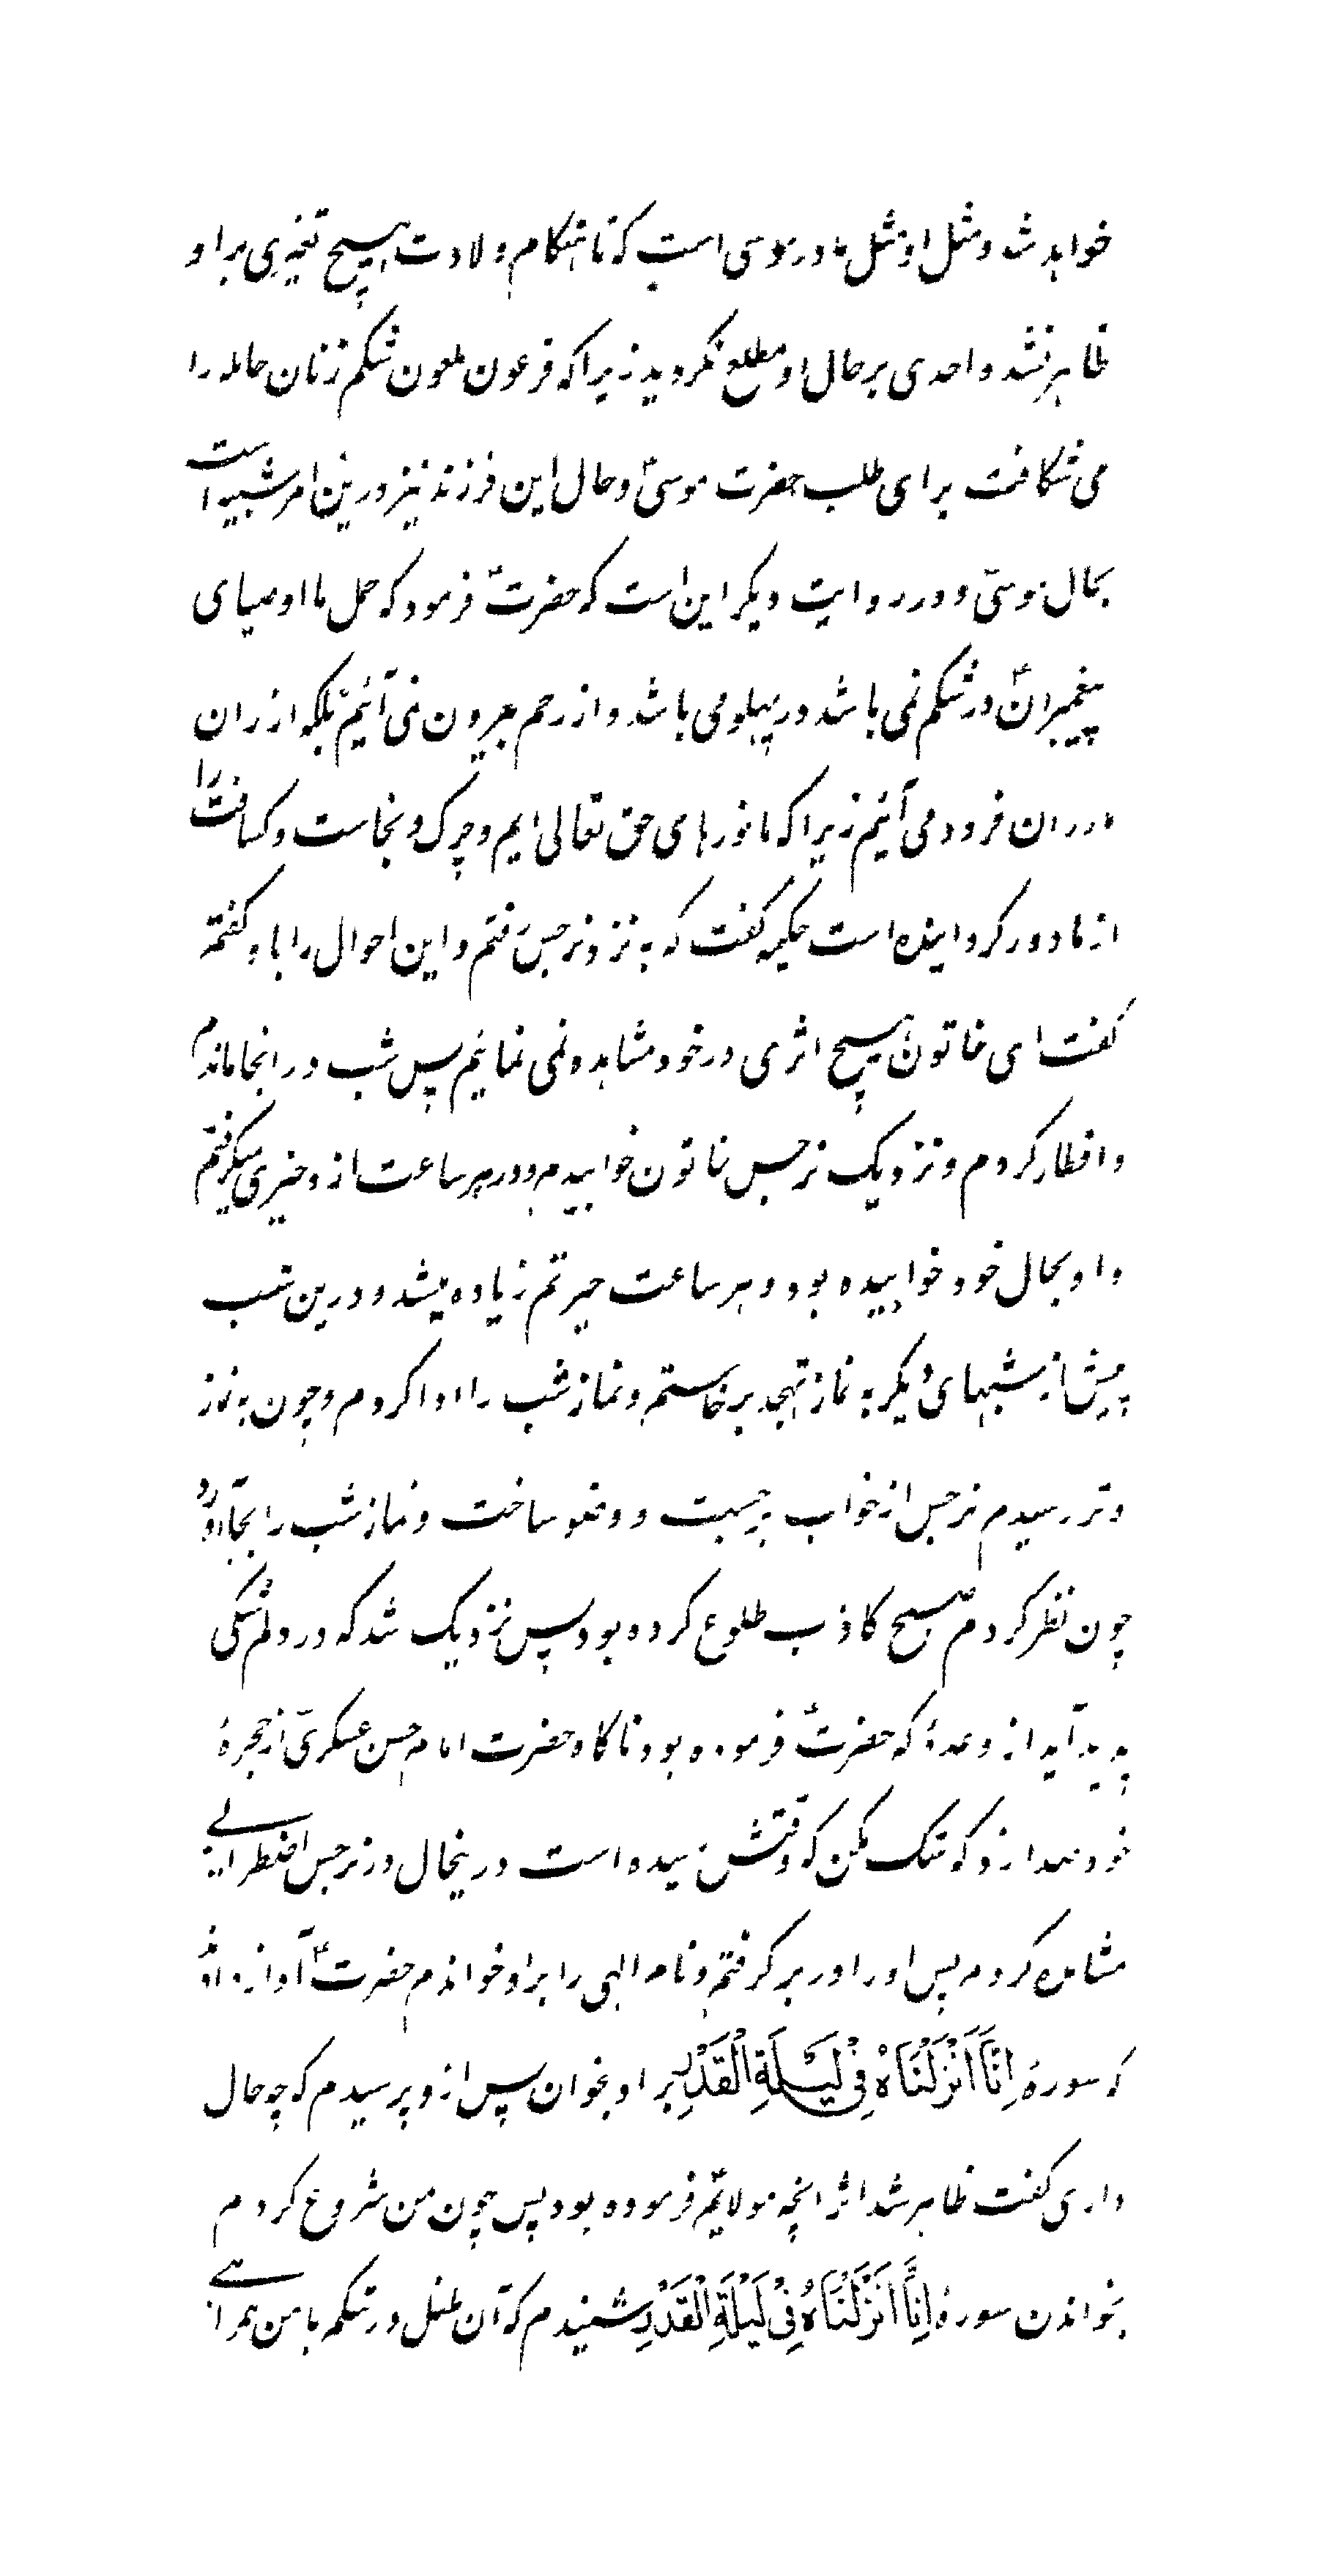 خواهد شد و مثل او مثل مادر موسی است که تا هنگام ولادت هیچ تغیری بر او
ظاهر نشد و احدی بر حال او مطلع نکردید زیرا که فرعون ملعون شکم زنان حامله را
می شکافت برای طلب حضرت موسیٰ و حال این فرزند نیز درین امر شبیه است
بحال موسیٰ و در روایت دیکر این است که حضرتؑ فرمود که حمل ما اوصیای
پیغمبرانؑ در شکم نمی باشد در پهلو می باشد و از رحم بیرون نمی آئیم بلکه از ران
مادران فرود می آئیم زیرا که ما نورهای حق تعالی ایم و چرک و نجاست و کسافت را
از ما دور کردانیده است حکیمه کفت که به نزد نرجس رفتم و این احوال را باو کفتم
کفت ای خاتون هیچ اثری در خود مشاهده نمی نمایم پس شب در انجا ماندم
و افطار کردم و نزدیک نرجس خاتون خوابیدم و در هر ساعت ازو خبری میکرفتم
و او بحال خود خوابیده بود و هر ساعت حیرتم زیاده میشد و درین شب
پیش از شبهای دیکر به نماز تهجد برخاستم و نماز شب را ادا کردم و چون به نماز
وتر رسیدم نرجس از خواب برجست و وضو ساخت و نماز شب را بجا آورد
چون نظر کردم صبح کاذب طلوع کرده بود پس نزدیک شد که در دلم شکی
پدید آید از وعدهٔ که حضرتؑ فرموده بود ناکاه حضرت امام حسن عسکریؑ از حجرهٔ
خود صدا زد که شک مکن که وقتش رسیده است درینحال در نرجس اضطرابی
مشاهده کردم پس او را در بر کرفتم و نام الهی را بر او خواندم حضرتؑ آواز دادند
که سورهٔ اِنَّا اَنْزَلْنَاهُ فِیْ لَیْلَةِ الْقَدْرِ بر او بخوان پس ازو پرسیدم که چه حال
داری کفت ظاهر شد اثر انچه مولایم فرموده بود پس چون من شروع کردم
بخواندن سورهٔ اِنَّا اَنْزَلْنَاهُ فِیْ لَیْلَةِ الْقَدْرِ شنیدم که آن طفل در شکم با من همراهی